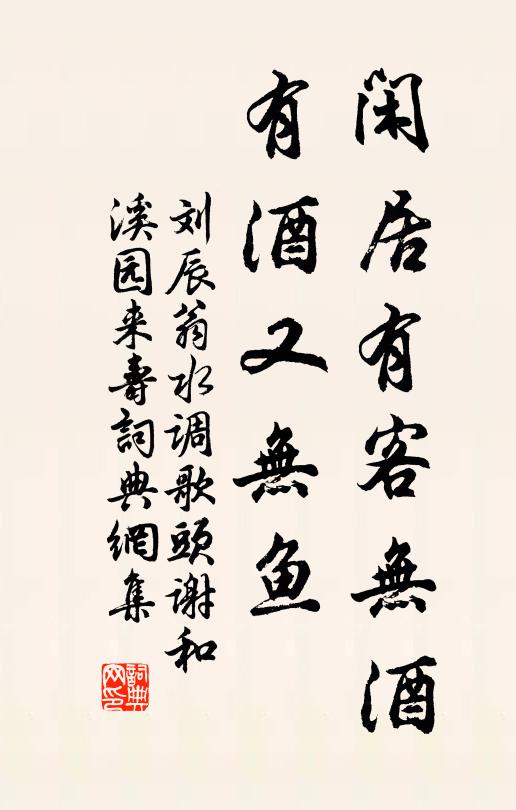 闲居有客無酒
有酒又無鱼
刘辰翁水调歌頭谢和
溪园来壽詞典網集
詞典網印